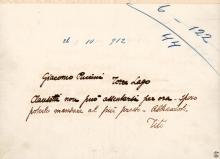 6 - 122
44
21 . IV . 912
Giacomo Puccini Torre Lago
Clausetti non può assentarsi per ora - Spero
poterlo mandare al più presto - Abbracciol.
Tito